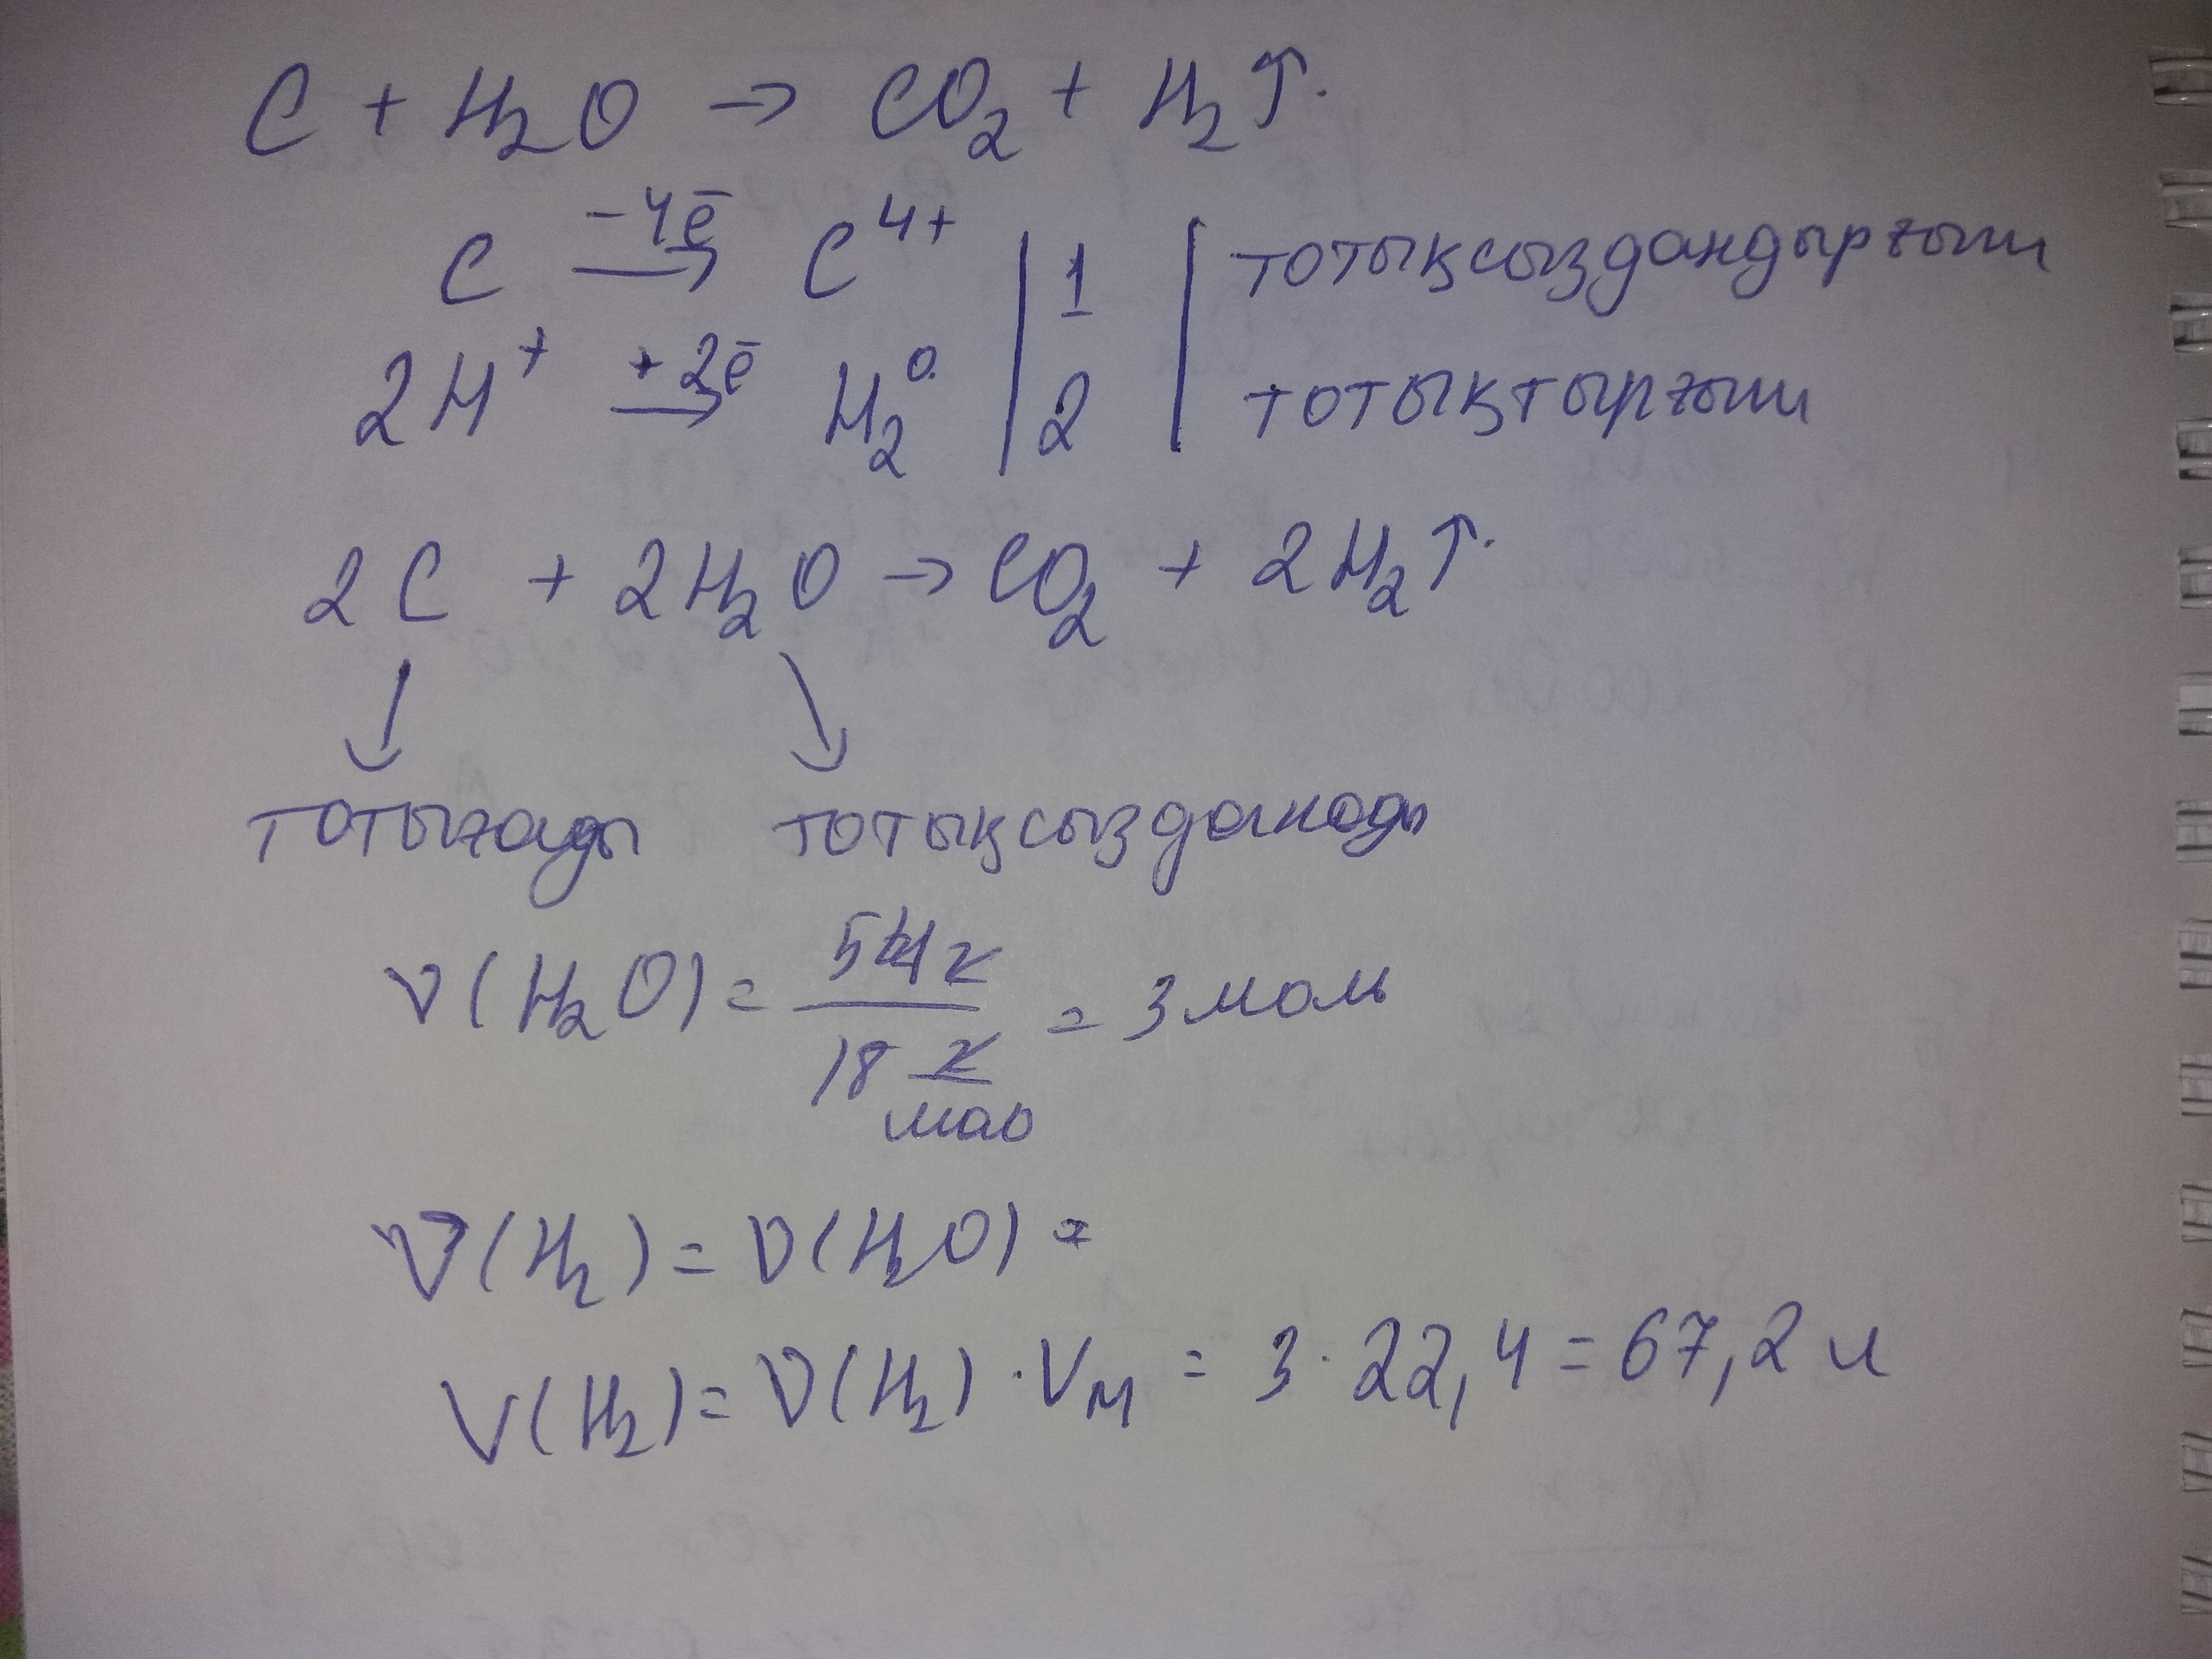 C + H₂O → CO₂ + H₂↑.
C -4ē→ C⁴⁺ | 1 | тотықсыздандырғыш
2H⁺ +2ē→ H₂⁰ | 2 | тотықтырғыш
2C + 2H₂O → CO₂ + 2H₂↑.
↓ ↘
тотығады тотықсызданады
ν(H₂O) = 54 г / 18 г/моль = 3 моль
ν(H₂) = ν(H₂O) =
V(H₂) = ν(H₂) · Vм = 3 · 22,4 = 67,2 л